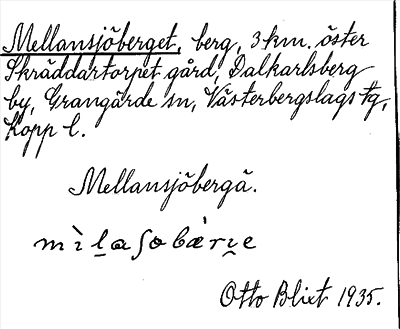 Mellansjöberget, berg, 3 km. öster
Skräddartorpet gård, Dalkarlsberg
by, Grangärde sn, Västerbergslags tg,
Kopp l.
Mellansjöbergä.
Otto Blixt 1935.